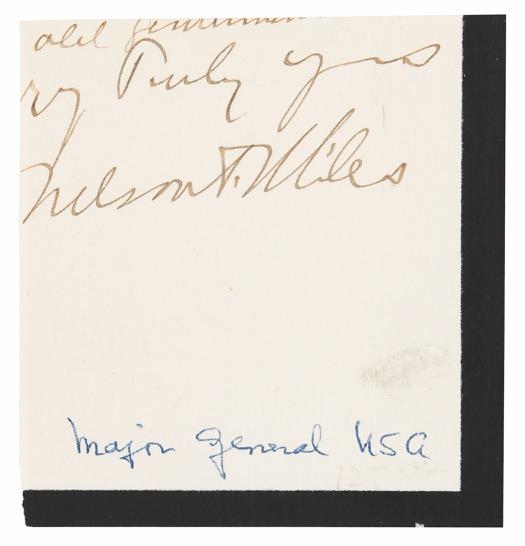 old gentleman
ry Truly yrs
Nelson A. Miles
Major General USA